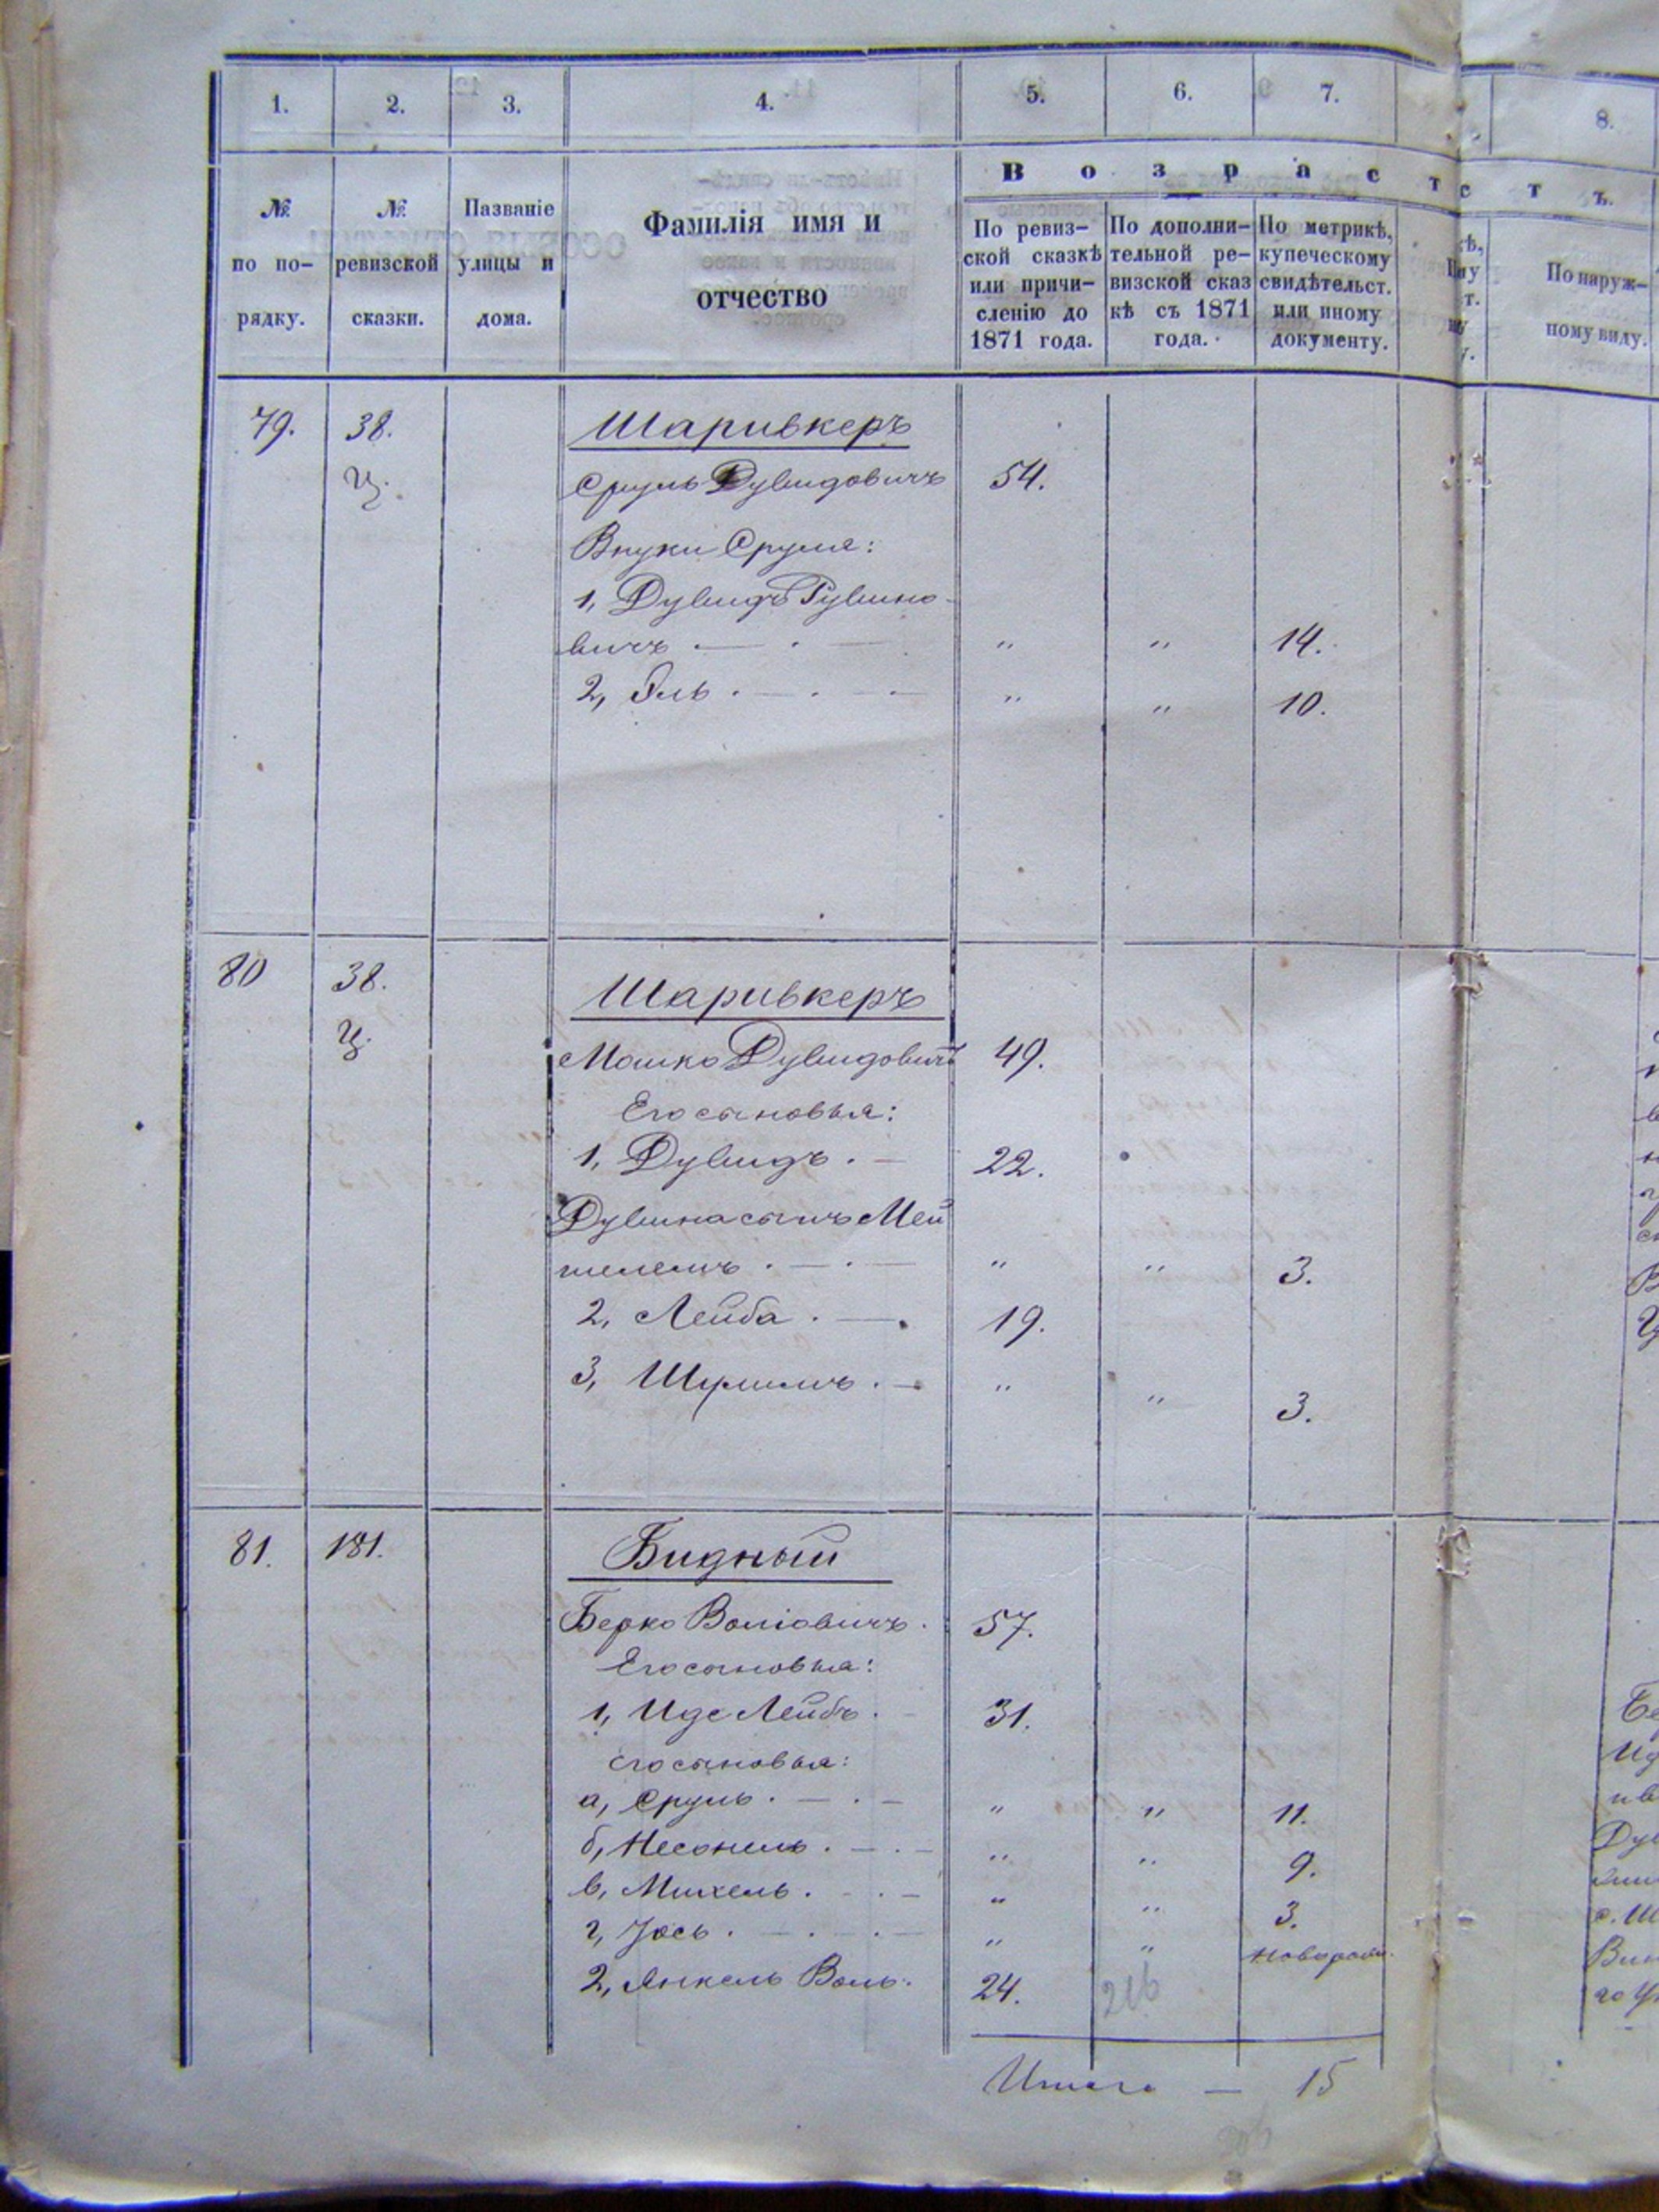 1. 2. 3. 4. 5. 6. 7. 8.
В о з р а с т с т ъ.
№ по по-рядку.
№ ревизской сказки.
Названіе улицы и дома.
Фамилія имя и отчество
По ревиз-ской сказкѣ или причи-сленію до 1871 года.
По дополни-тельной ре-визской сказ кѣ съ 1871 года.
По метрикѣ, купеческому свидѣтельст. или иному документу.
По наруж-ному виду.
79. 38. Шаривкеръ
Ц. Сруль Дувидовичъ 54.
Внуки Сруля:
1, Дувидъ Рувино-
вичъ " " 14.
2, Эль " " 10.
80 38. Шаривкеръ
Ц. Мошко Дувидовичъ 49.
Его сыновья:
1, Дувидъ 22.
Дувида сынъ Мей
шелемъ " " 3.
2, Лейба 19.
3, Шулимъ " " 3.
81. 181. Бидный
Берко Воліовичъ 57.
Его сыновья:
1, Иде Лейбъ 31.
его сыновья:
а, Сруль " " 11.
б, Несонель " " 9.
в, Михель " " 3.
г, Іось " " новорожд.
2, Янкель Воль 24. 216
Итого — 15